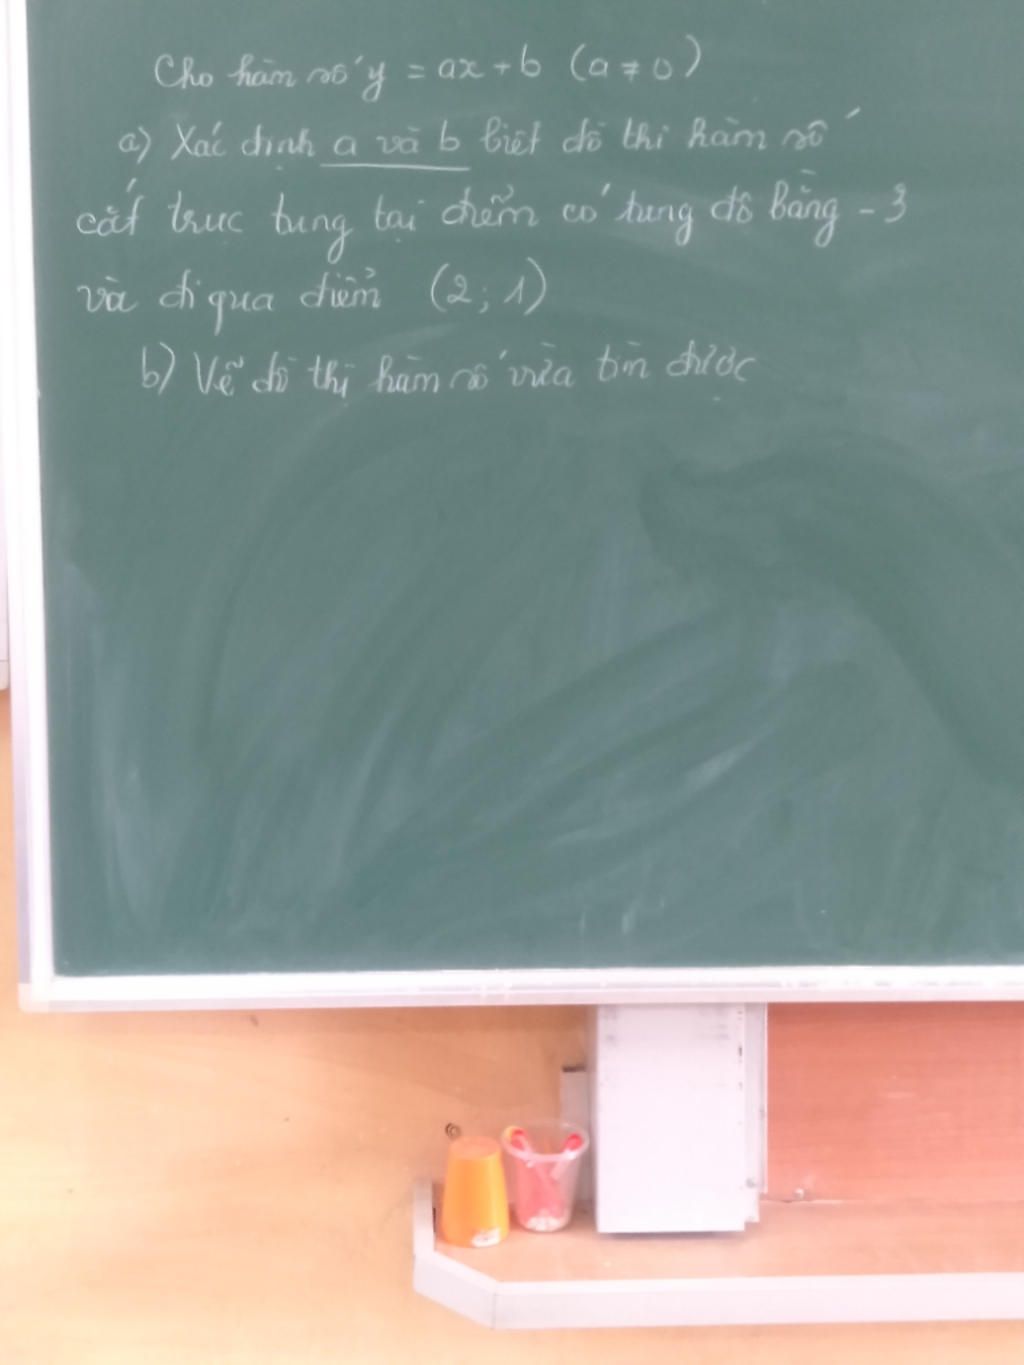 Cho hàm số y = ax + b (a ≠ 0)
a) Xác định a và b biết đồ thị hàm số
cắt trục tung tại điểm có tung độ bằng -3
và đi qua điểm (2; 1)
b) Vẽ đồ thị hàm số vừa tìm được